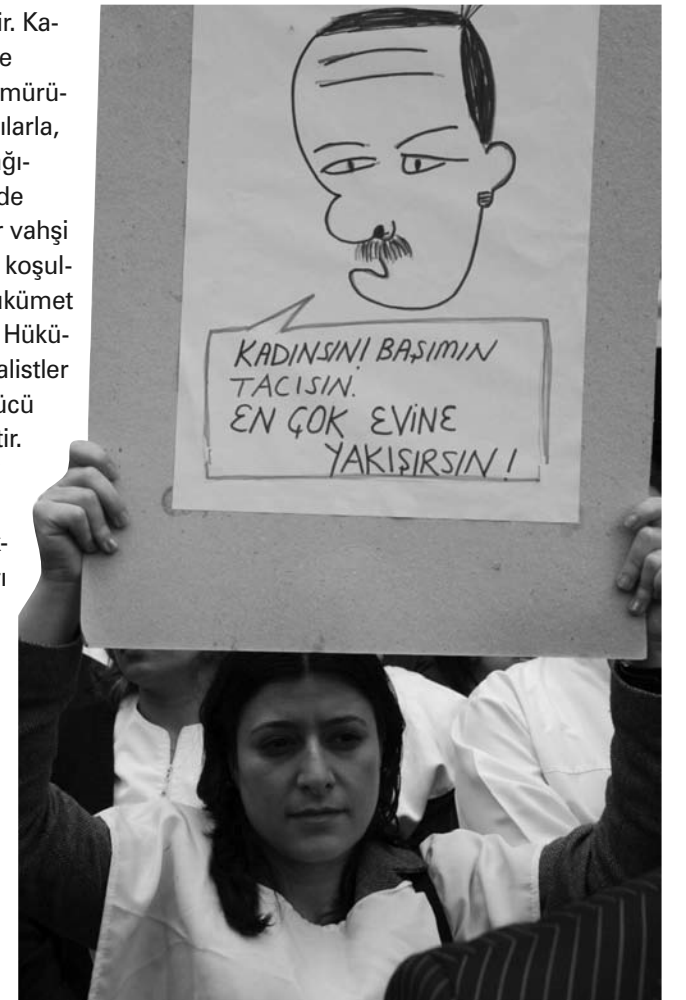 ir. Ka-
e
mürü-
ılarla,
ğı-
de
r vahşi
koşul-
kümet
Hükü-
alistler
ücü
tir.
KADINSIN! BAŞIMIN
TACISIN.
EN ÇOK EVİNE
YAKIŞIRSIN!